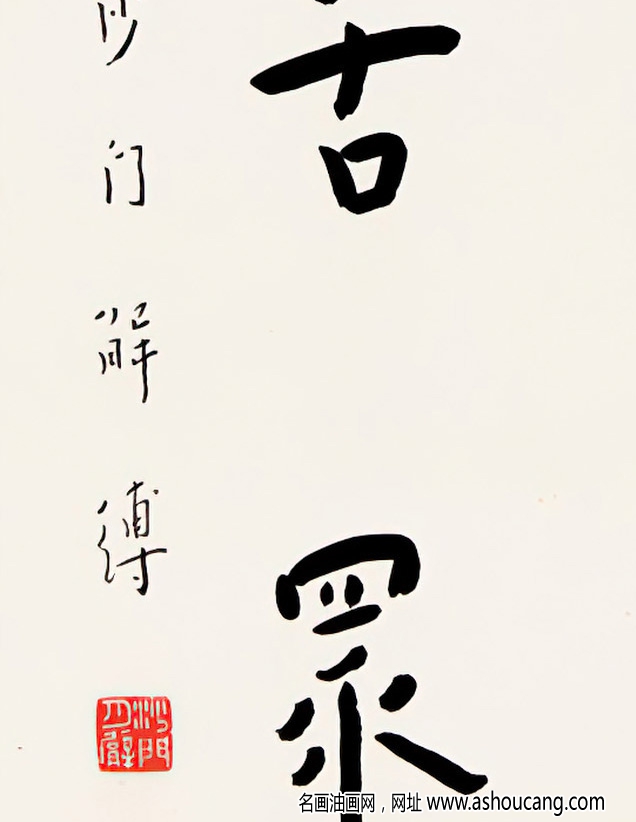 眾
門解縛
沙門月臂
名画油画网，网址 www.ashoucang.com